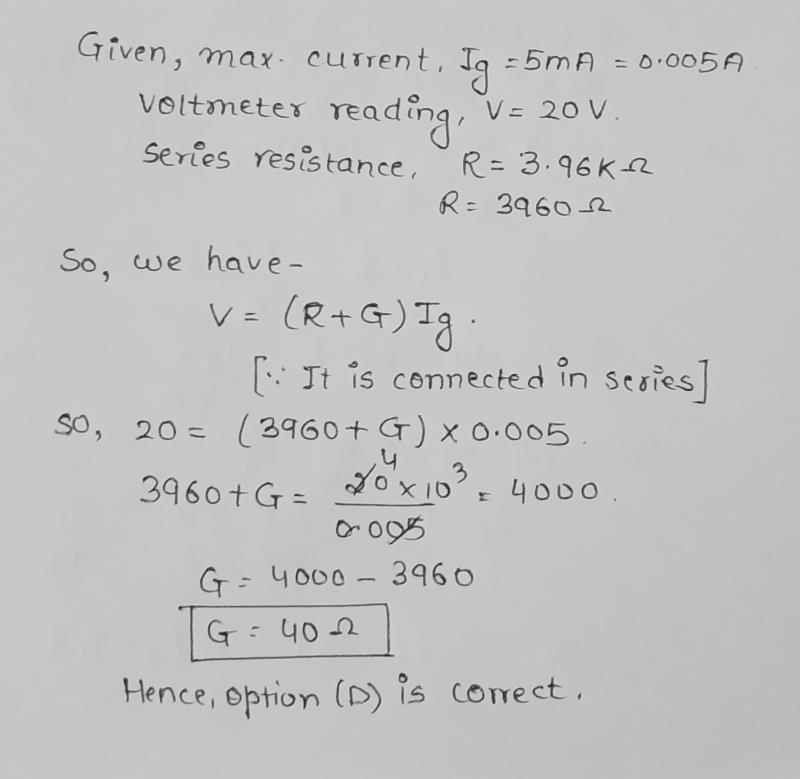 Given, max. current, Ig = 5mA = 0.005A.
Voltmeter reading, V = 20 V.
Series resistance, R = 3.96KΩ
R = 3960 Ω
So, we have -
V = (R+G) Ig.
[∵ It is connected in series]
so, 20 = (3960 + G) × 0.005.
4
3960 + G = 20 × 10³ = 4000.
0.005
G = 4000 - 3960
G = 40 Ω
Hence, option (D) is correct.